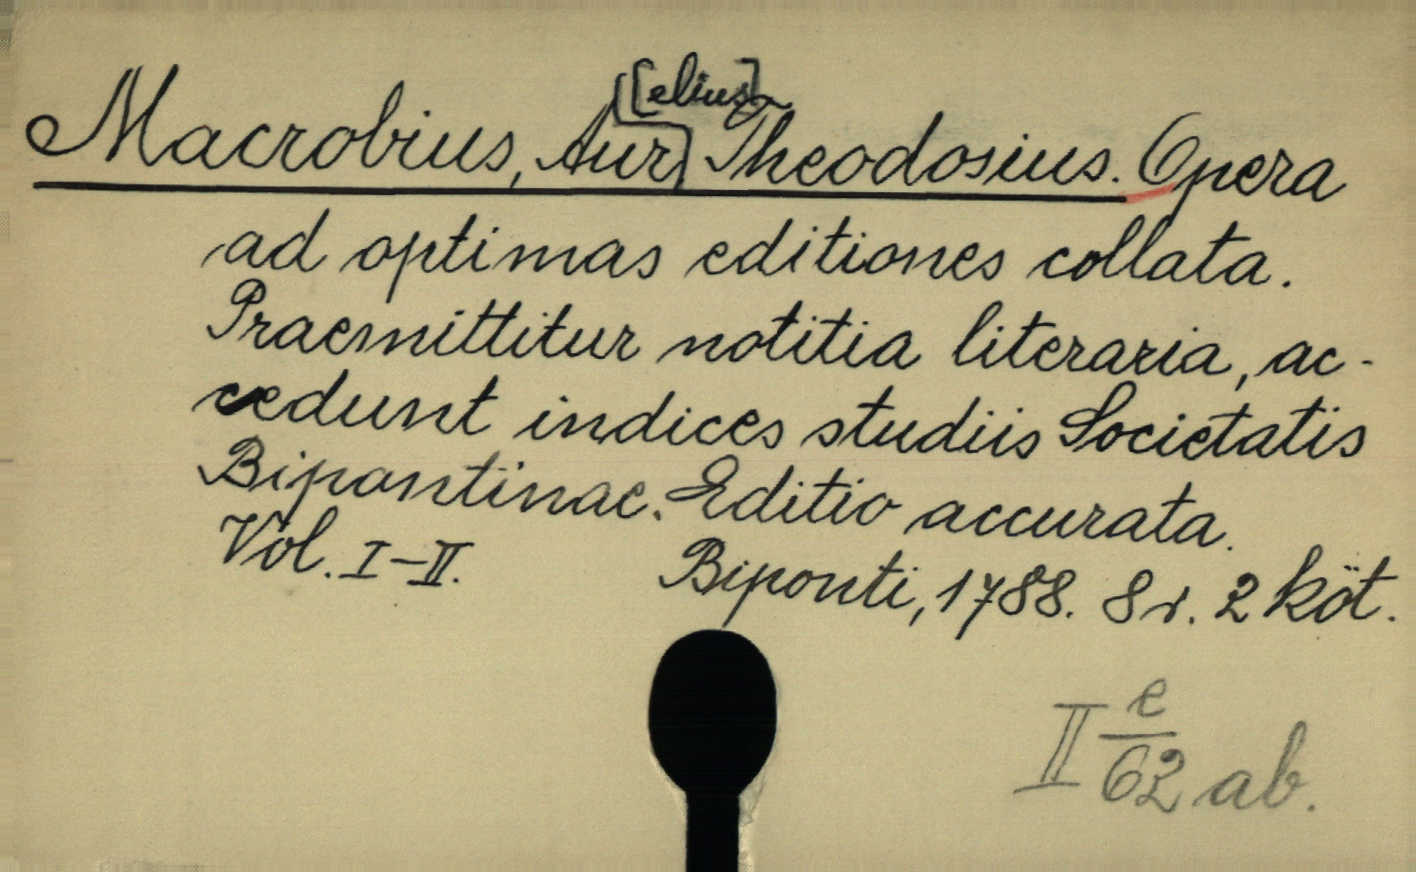 Macrobius, Aur[elius] Theodosius. Opera
ad optimas editiones collata.
Praemittitur notitia literaria, ac-
cedunt indices studiis Societatis
Bipontinae. Editio accurata.
Vol. I-II. Biponti, 1788. 8r. 2 köt.
II e/62 ab.